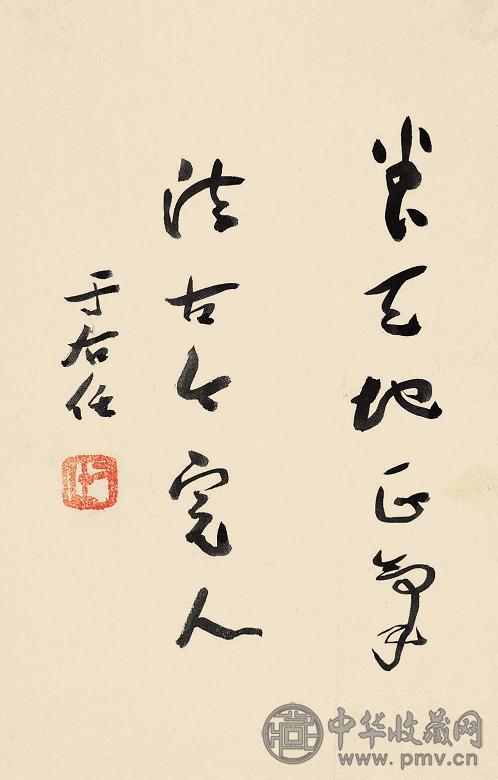 養天地正氣
法古今完人
于右任
中华收藏网
www.pmv.cn